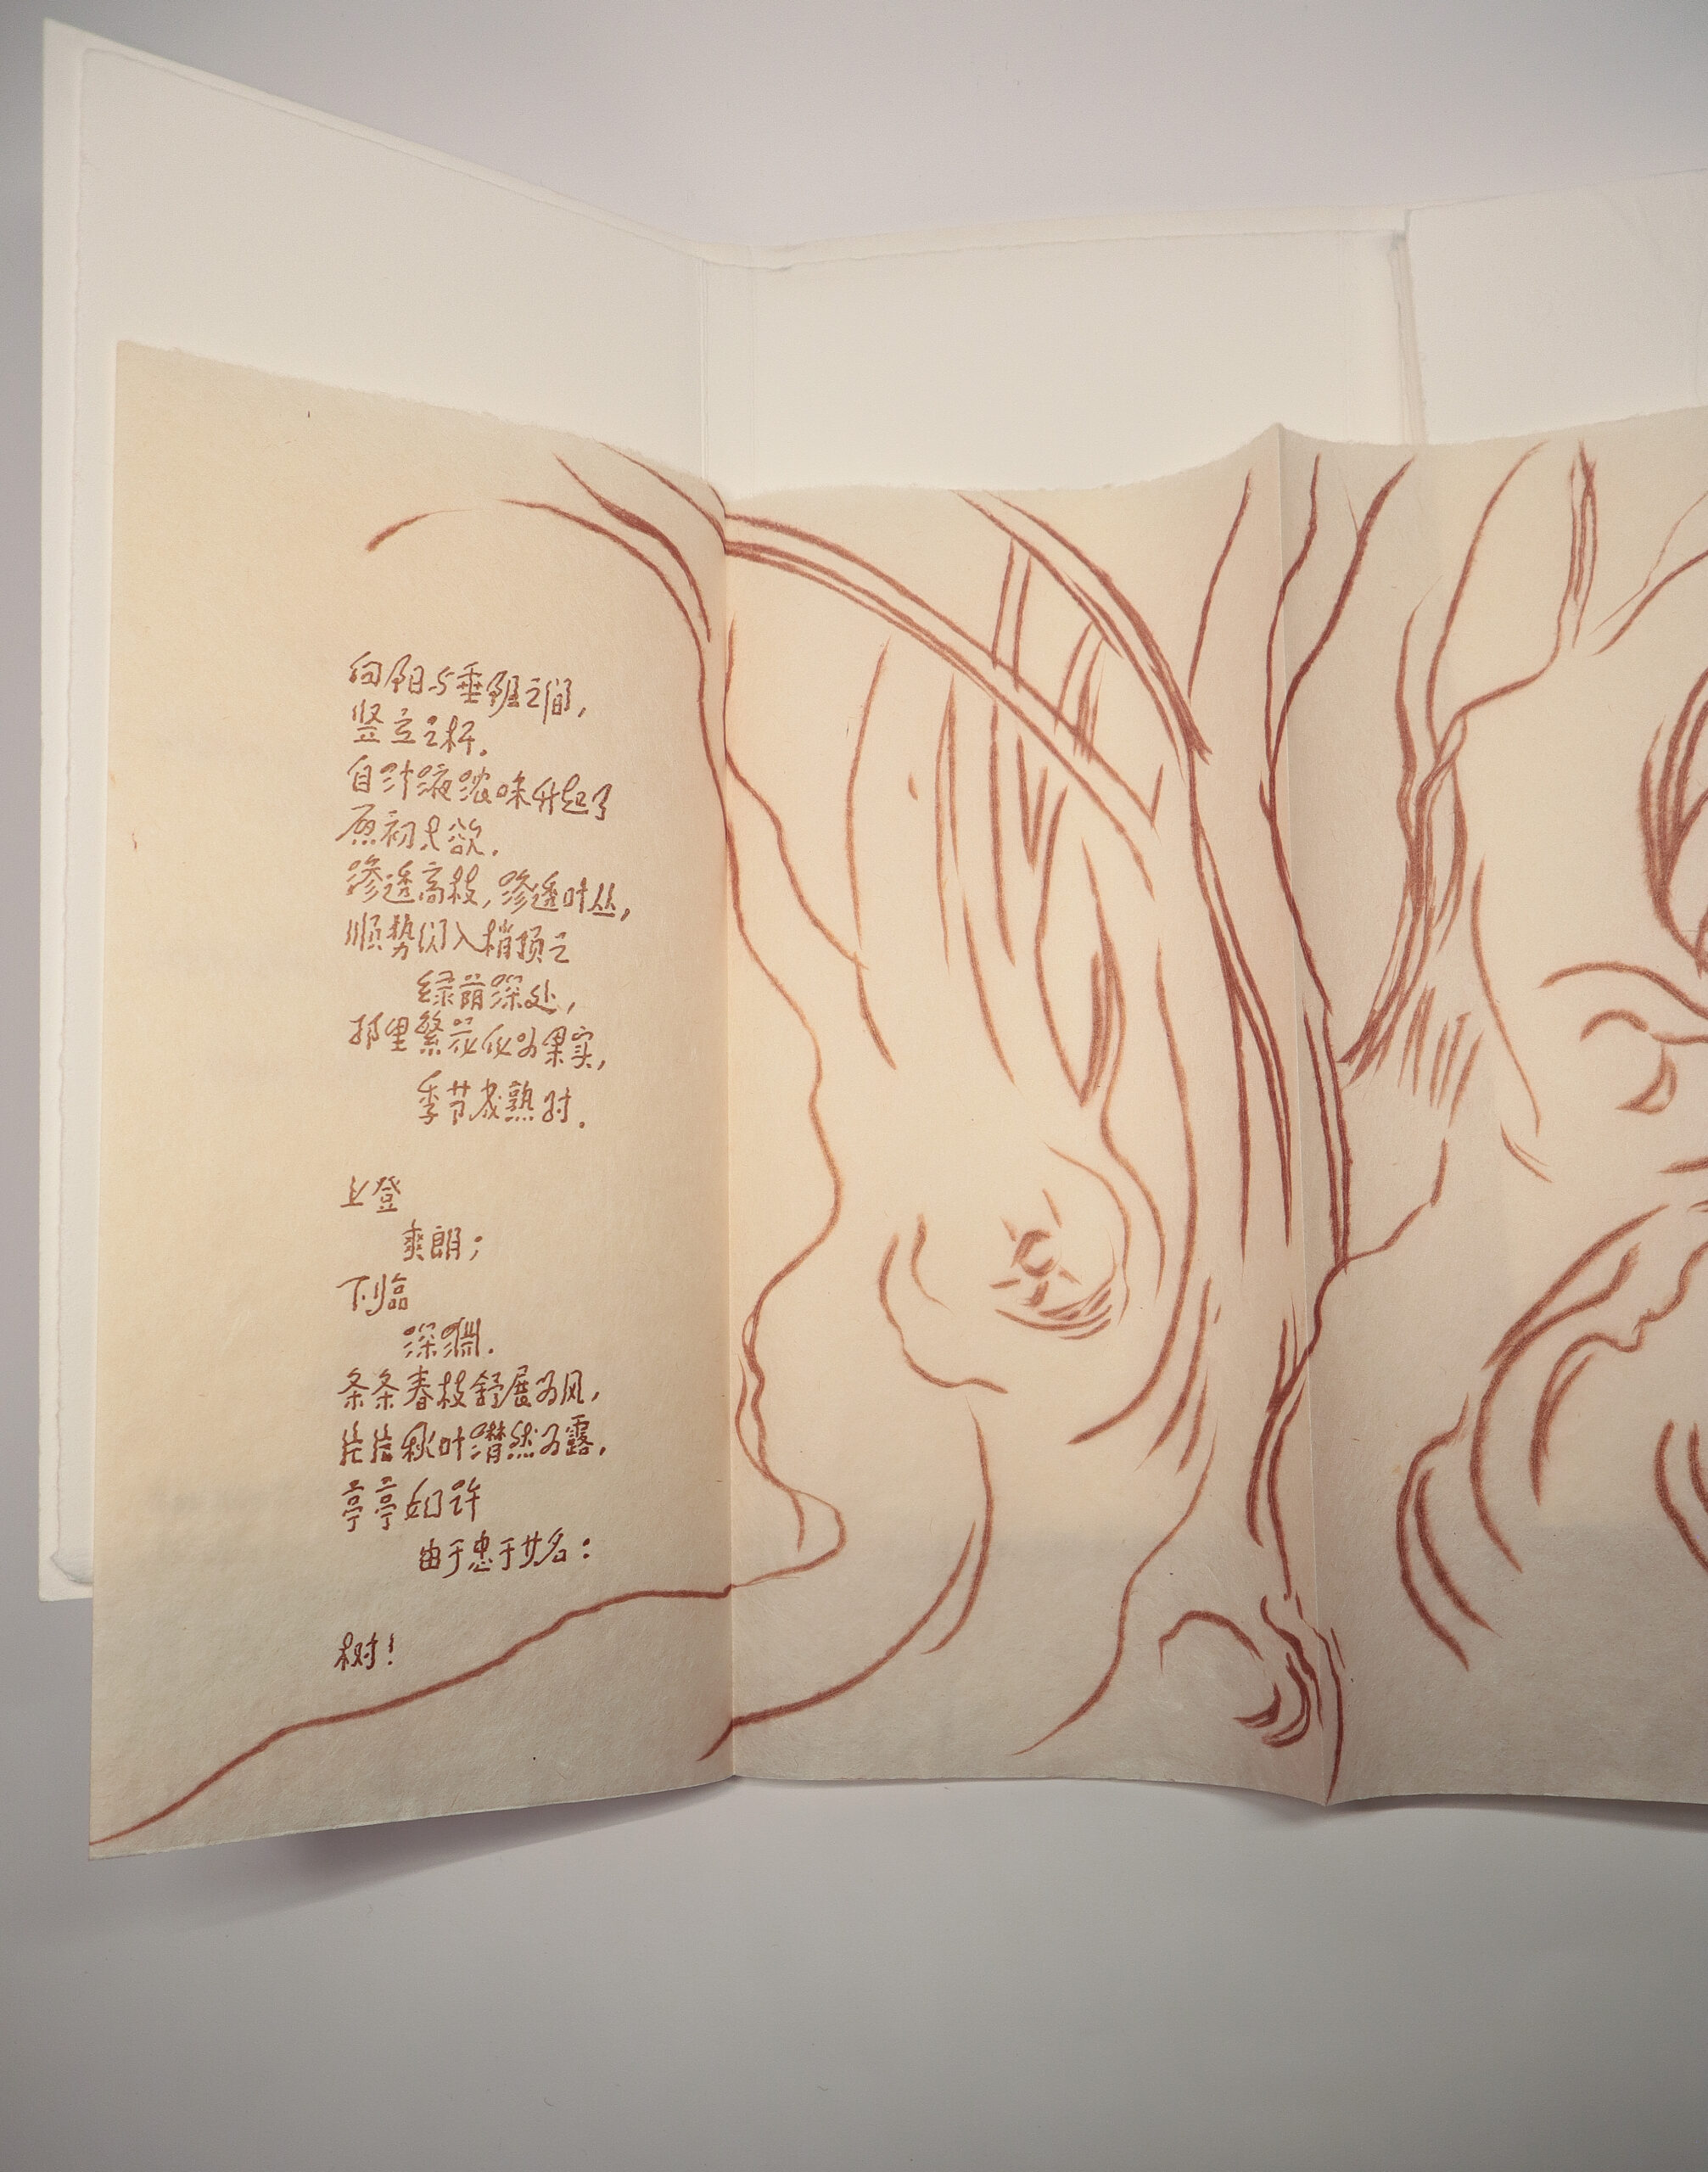 向阳与垂阴之间,
竖立之杆.
自汁液浓味升起了
原初之欲.
渗透高枝,渗透叶丛,
顺势闪入梢顶之
绿荫深处,
那里繁花化为果实,
季节成熟时.
上登
爽朗;
下临
深渊.
条条春枝舒展为风,
秋叶潸然为露,
亭亭如许
由于忠于其名:
树!